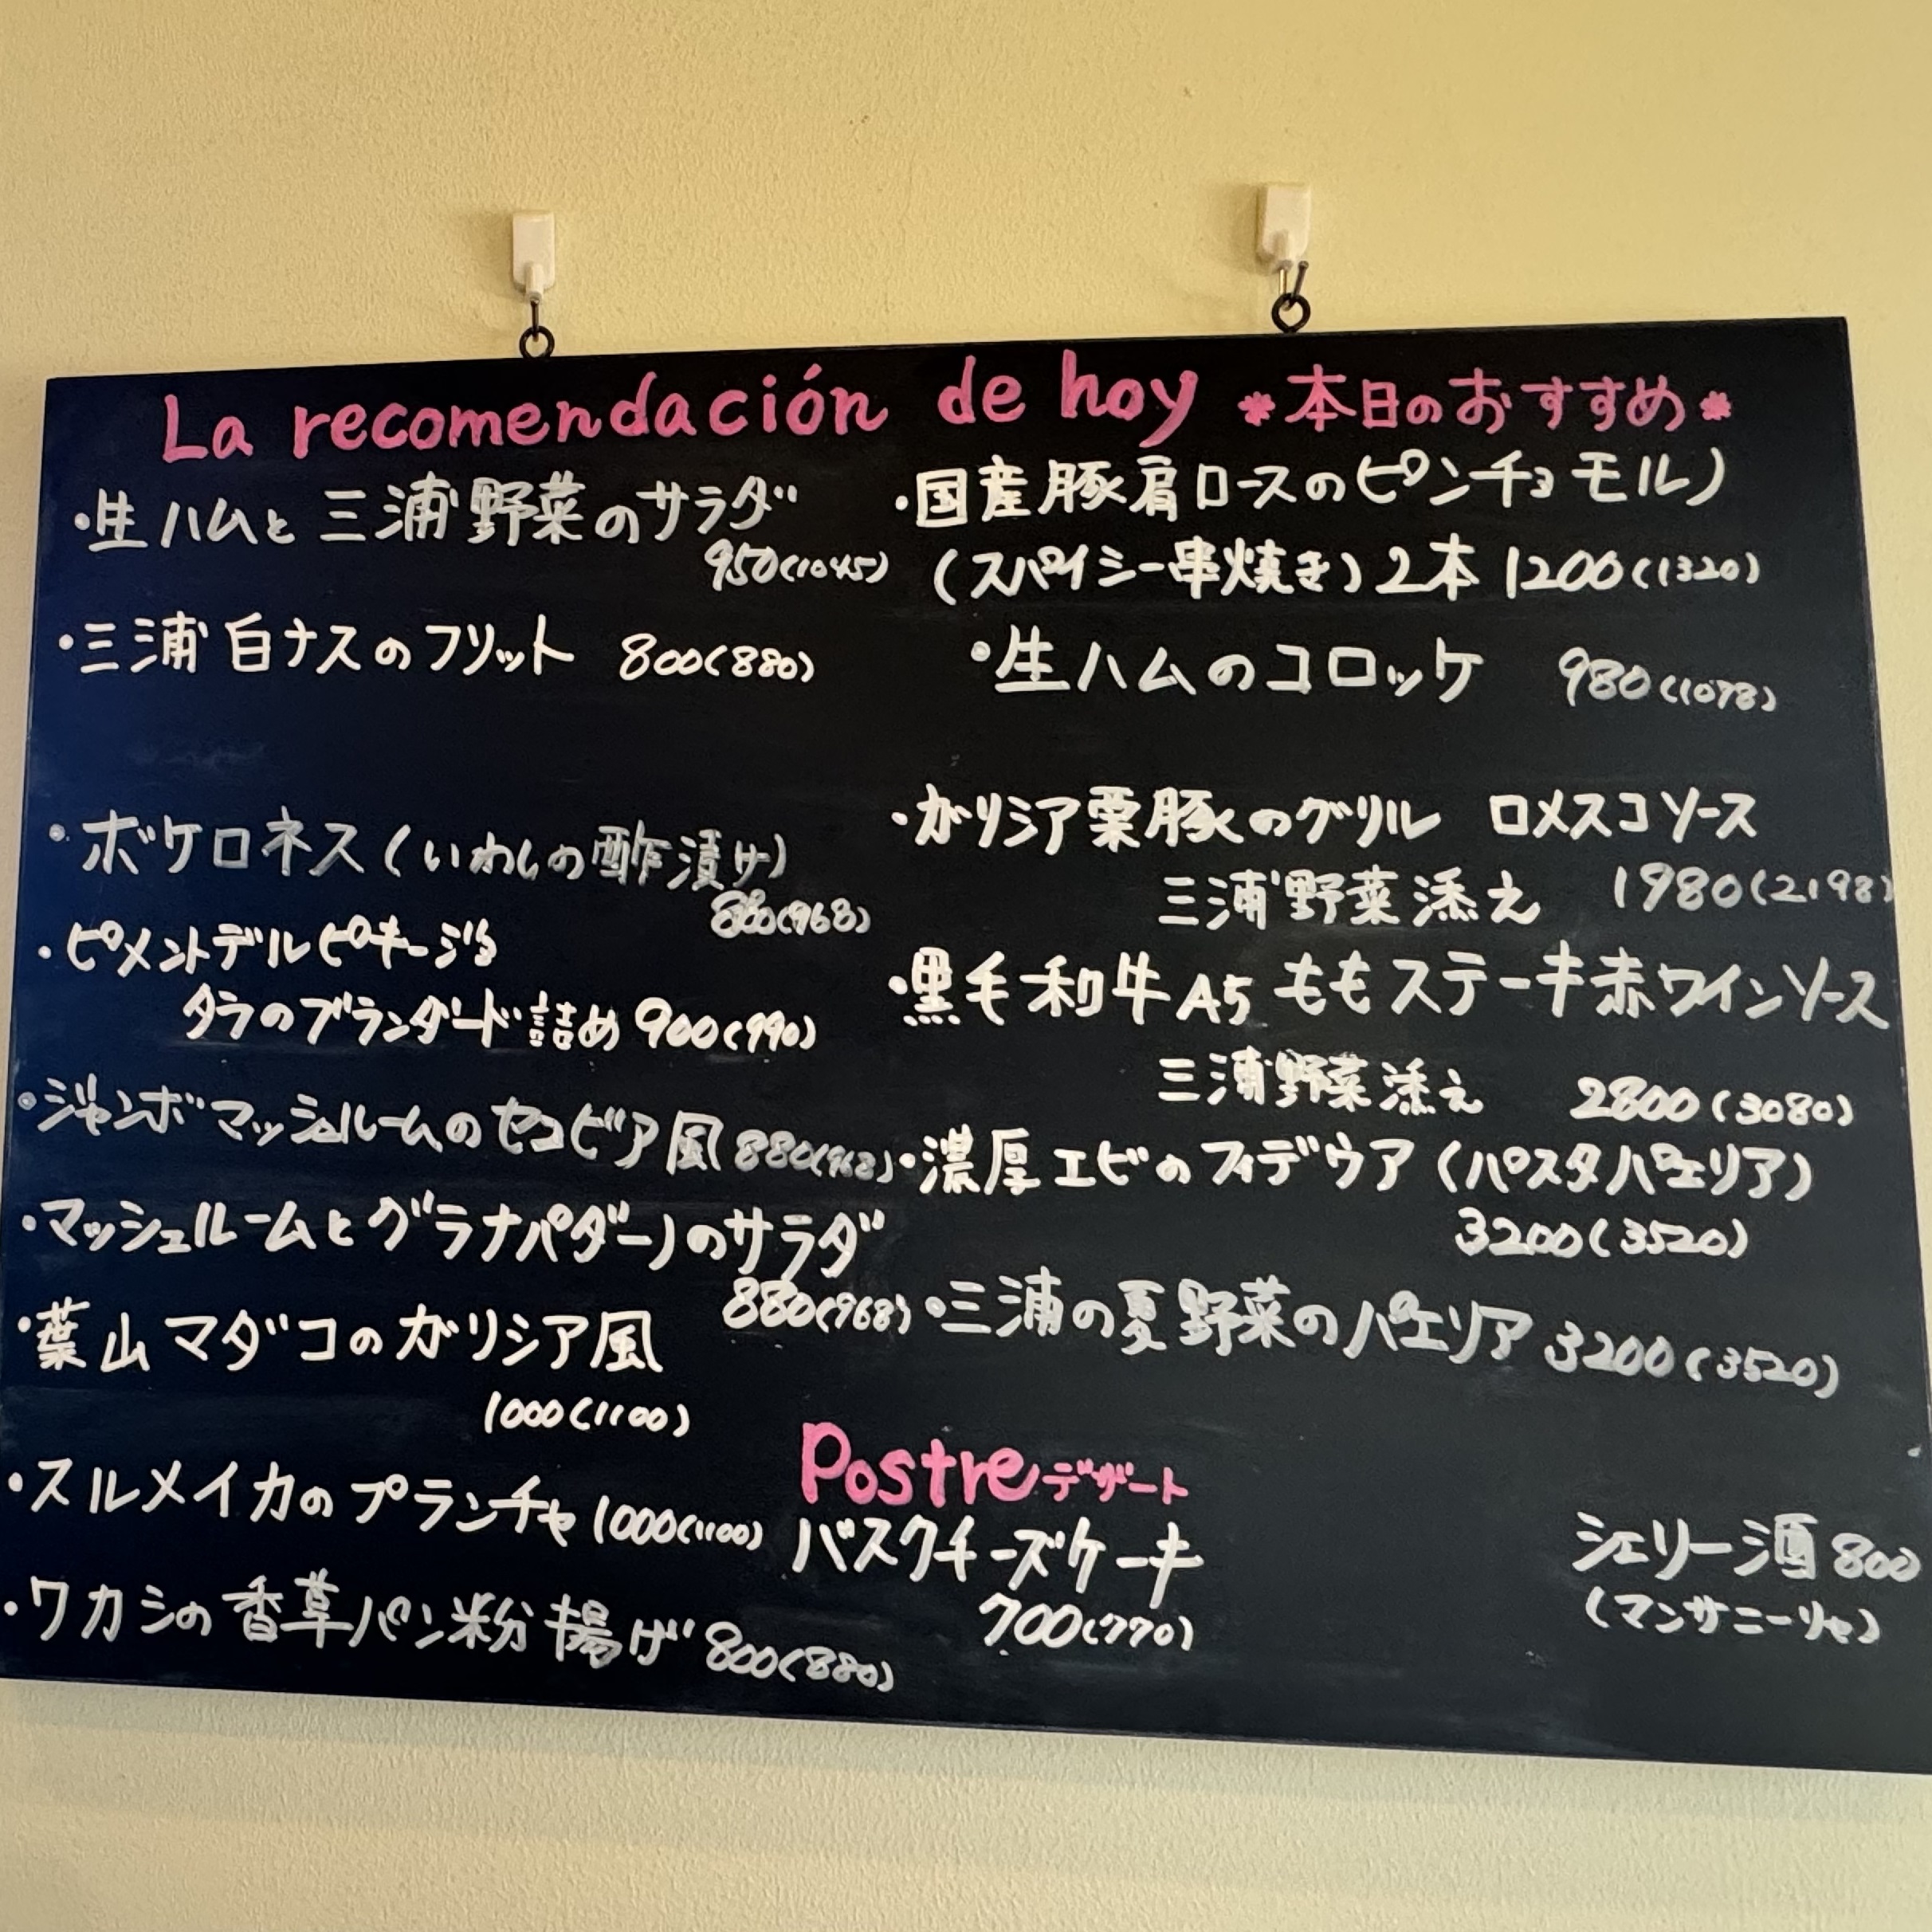 La recomendación de hoy *本日のおすすめ*
・生ハムと三浦野菜のサラダ
950(1045)
・三浦白ナスのフリット 800(880)
・ボケロネス(いわしの酢漬け)
880(968)
・ピメントデルピキージョ
タラのブランダード詰め 900(990)
・ジャンボマッシュルームのセコビア風 880(968)
・マッシュルームとグラナパダーノのサラダ
880(968)
・葉山マダコのガリシア風
1000(1100)
・スルメイカのプランチャ 1000(1100)
・ワカシの香草パン粉揚げ 800(880)
・国産豚肩ロースのピンチョモルノ
(スパイシー串焼き)2本 1200(1320)
・生ハムのコロッケ 980(1078)
・ガリシア栗豚のグリル ロメスコソース
三浦野菜添え 1980(2198)
・黒毛和牛A5ももステーキ赤ワインソース
三浦野菜添え 2800(3080)
・濃厚エビのフィデウア(パスタパエリア)
3200(3520)
・三浦の夏野菜のパエリア 3200(3520)
Postre デザート
バスクチーズケーキ
700(770)
シェリー酒 800
(マンサニーリャ)